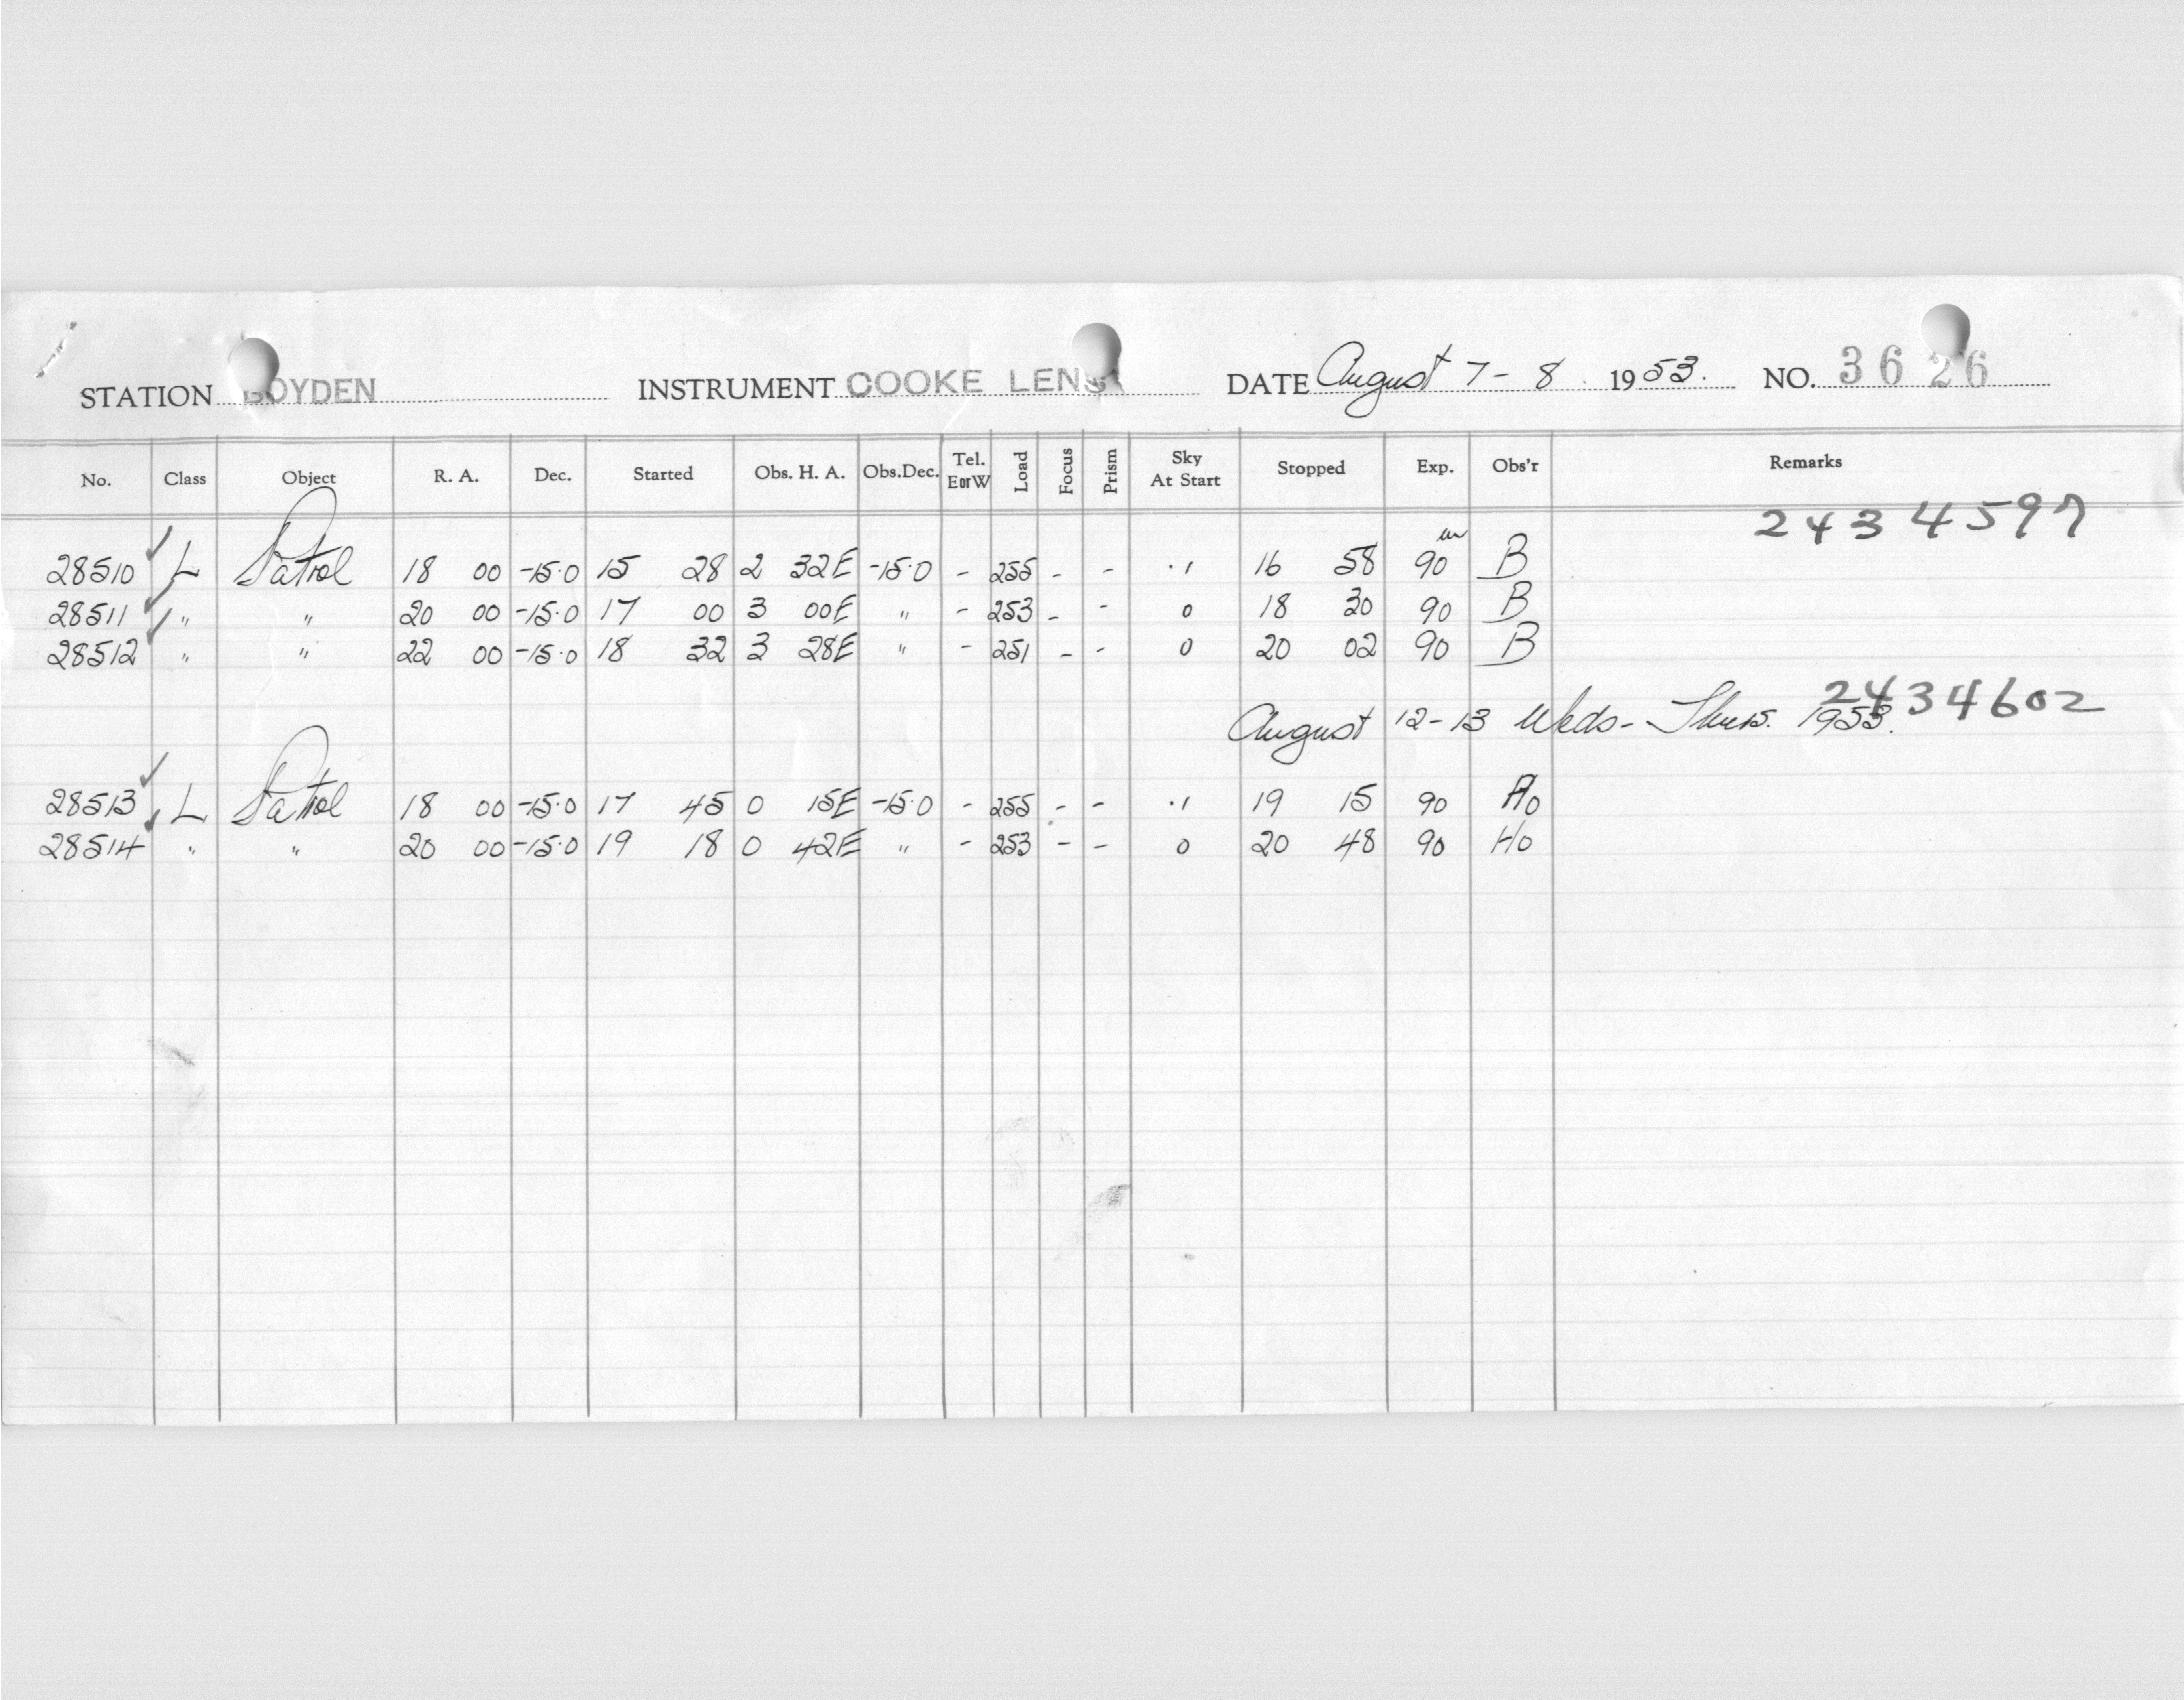 STATION BOYDEN INSTRUMENT COOKE LENS DATE August 7-8 1953. NO. 3626
No. Class Object R. A. Dec. Started Obs. H. A. Obs.Dec. Tel. E or W Load Focus Prism Sky At Start Stopped Exp. Obs'r Remarks
2434597
28510 ✓ L Patrol 18 00 -15.0 15 28 2 32E -15.0 - 255 - - .1 16 58 90 m B
28511 ✓ " " 20 00 -15.0 17 00 3 00E " - 253 - - 0 18 30 90 B
28512 ✓ " " 22 00 -15.0 18 32 3 28E " - 251 - - 0 20 02 90 B
2434602
August 12-13 Weds-Thurs. 1953.
28513 ✓ L Patrol 18 00 -15.0 17 45 0 15E -15.0 - 255 - - .1 19 15 90 Ho
28514 ✓ " " 20 00 -15.0 19 18 0 42E " - 253 - - 0 20 48 90 Ho